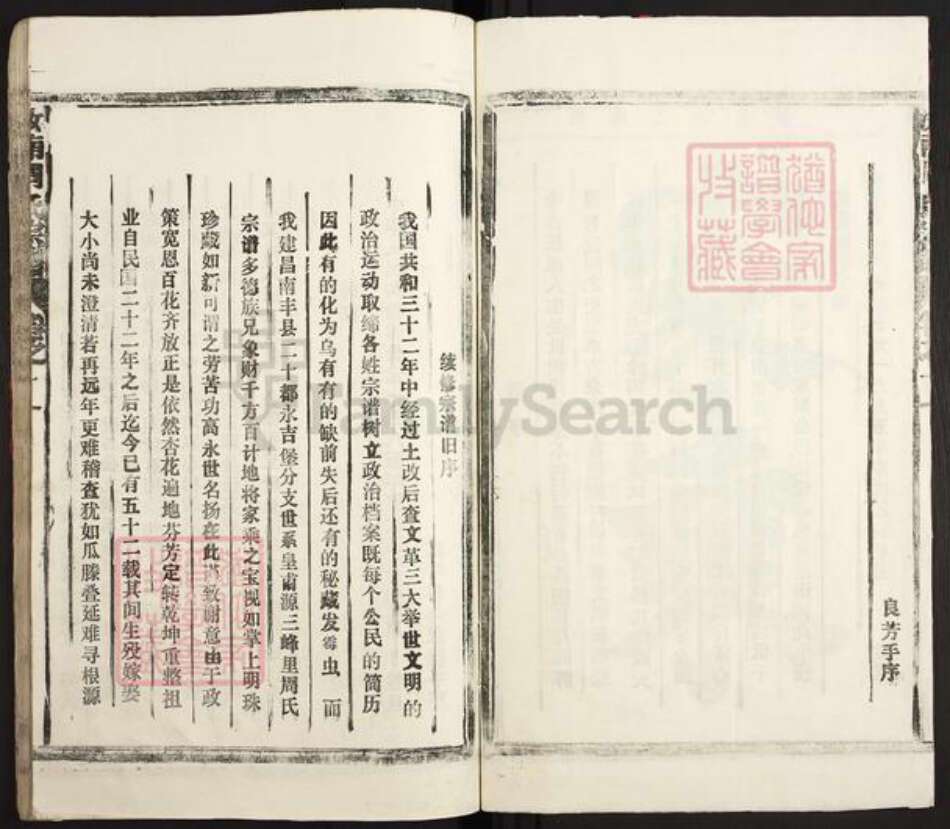 良芳手序
续修宗谱旧序
我国共和三十二年中经过土改后查文革三大举世文明的
政治运动取缔各姓宗谱树立政治档案既每个公民的简历
因此有的化为乌有有的缺前失后还有的秘藏发霉虫 而
我建昌南丰县二十都永吉堡分支世系皇甫源三峰里周氏
宗谱多德族兄象财千方百计地将家乘之宝视如掌上明珠
珍藏如新可谓之劳苦功高永世名扬在此 致谢意由于政
策宽恩百花齐放正是依然杏花遍地芬芳定转乾坤重整祖
业自民国二十二年之后迄今已有五十二载其间生殁嫁娶
大小尚未澄清若再远年更难稽查犹如瓜滕叠延难寻根源
FamilySearch
谱学会
收藏